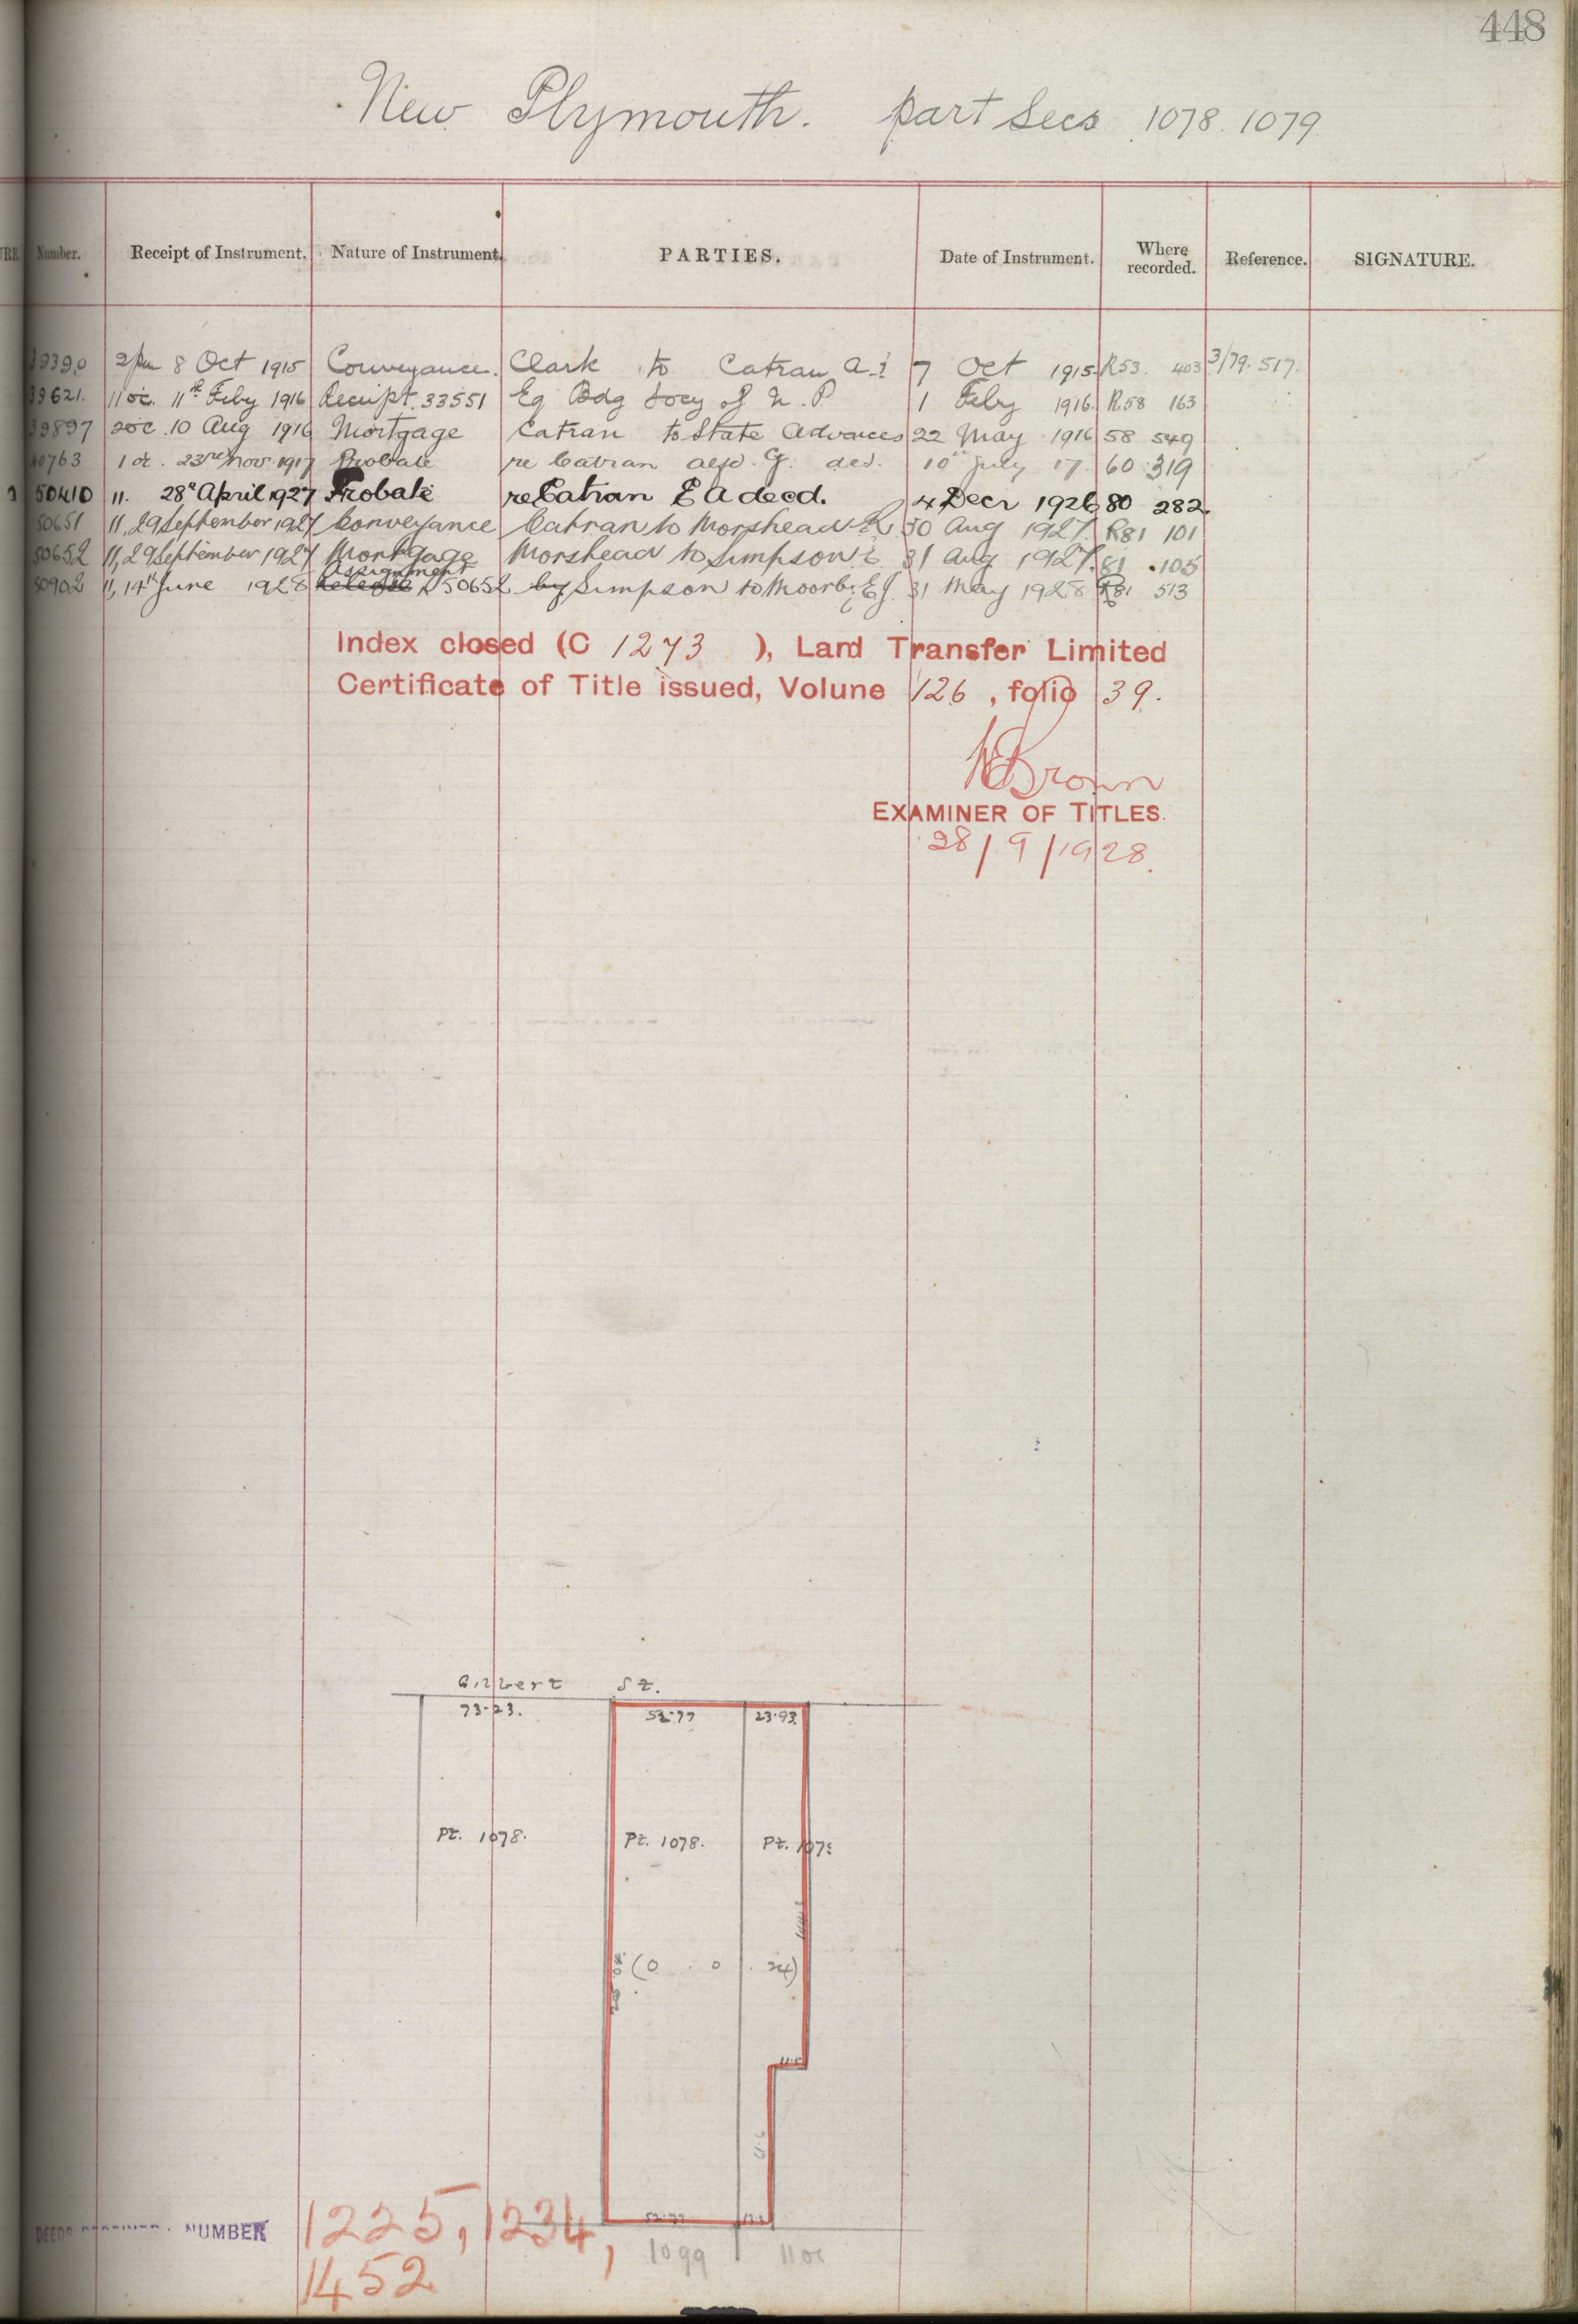 448
New Plymouth. part Secs 1078. 1079
Number. Receipt of Instrument. Nature of Instrument. PARTIES. Date of Instrument. Where recorded. Reference. SIGNATURE.
39390 2pm 8 Oct 1915 Conveyance. Clark to Catran A. 7 Oct 1915. R53. 403 3/79. 517.
39621. 11 oc. 11th Feby 1916 Receipt. 33551 Eq Bdg Socy of N. P 1 Feby 1916. R58 163
39897 2 oc. 10 Aug 1916 Mortgage Catran to State Advances 22 May 1916 58 549
40763 1 oc. 23rd Nov 1917 Probate re Catran G. ded. 10th July 17. 60 319
50410 11. 28th April 1927 Probate re Catran E A decd. 4 Decr 1926 80 282.
50651 11, 29 September 1927 Conveyance Catran to Morshead 30 Aug 1927. R81 101
50652 11, 29 September 1927 Mortgage Morshead to Simpson 31 Aug 1927. 81 .105
Assignment
50902 11, 14th June 1928 Release 50652 by Simpson to Moorby E J. 31 May 1928 R81 513
Index closed (C 1273 ), Land Transfer Limited
Certificate of Title issued, Volune 126, folio 39.
Brown
EXAMINER OF TITLES.
28/9/1928.
Gilbert St.
73.23. 52.77 23.93
Pt. 1078. Pt. 1078. Pt. 107
(0 . 0 . 24)
52.77
NUMBER 1225, 1234,
1099
1452